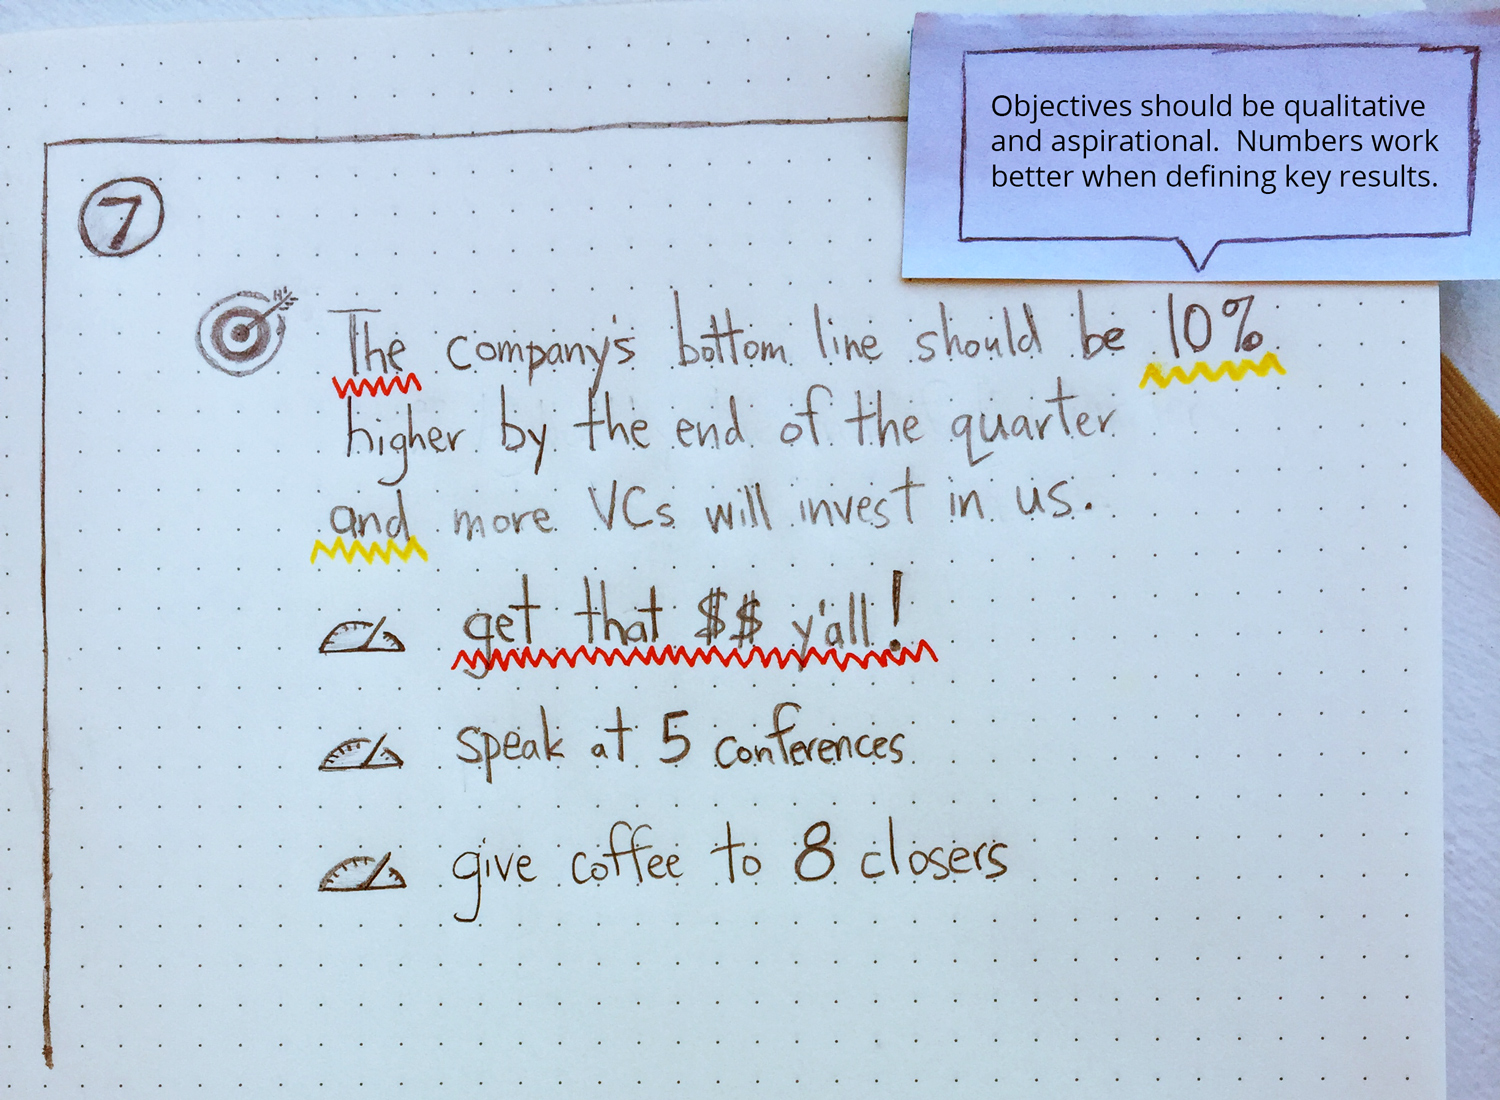 Objectives should be qualitative
and aspirational. Numbers work
better when defining key results.
7
The company's bottom line should be 10%
higher by the end of the quarter
and more VCs will invest in us.
get that $$ y'all!
speak at 5 conferences
give coffee to 8 closers